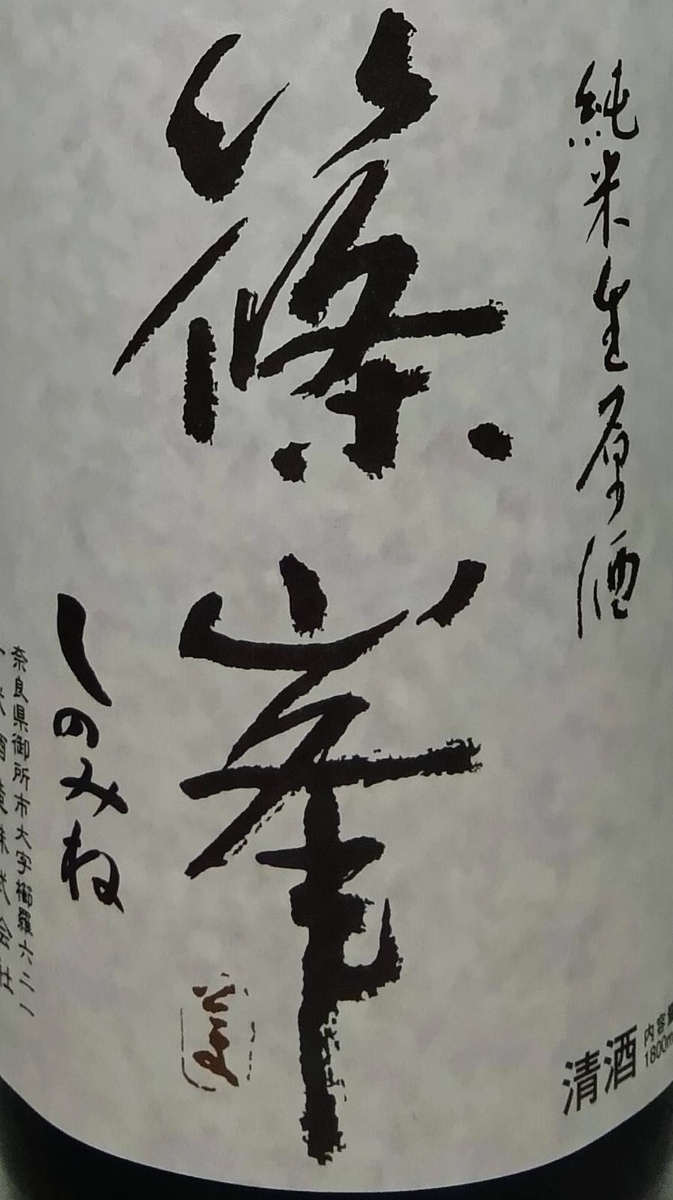 純米生原酒
篠峯
しのみね
奈良県御所市大字櫛羅六二一
酒造株式会社
清酒
内容量
1800m